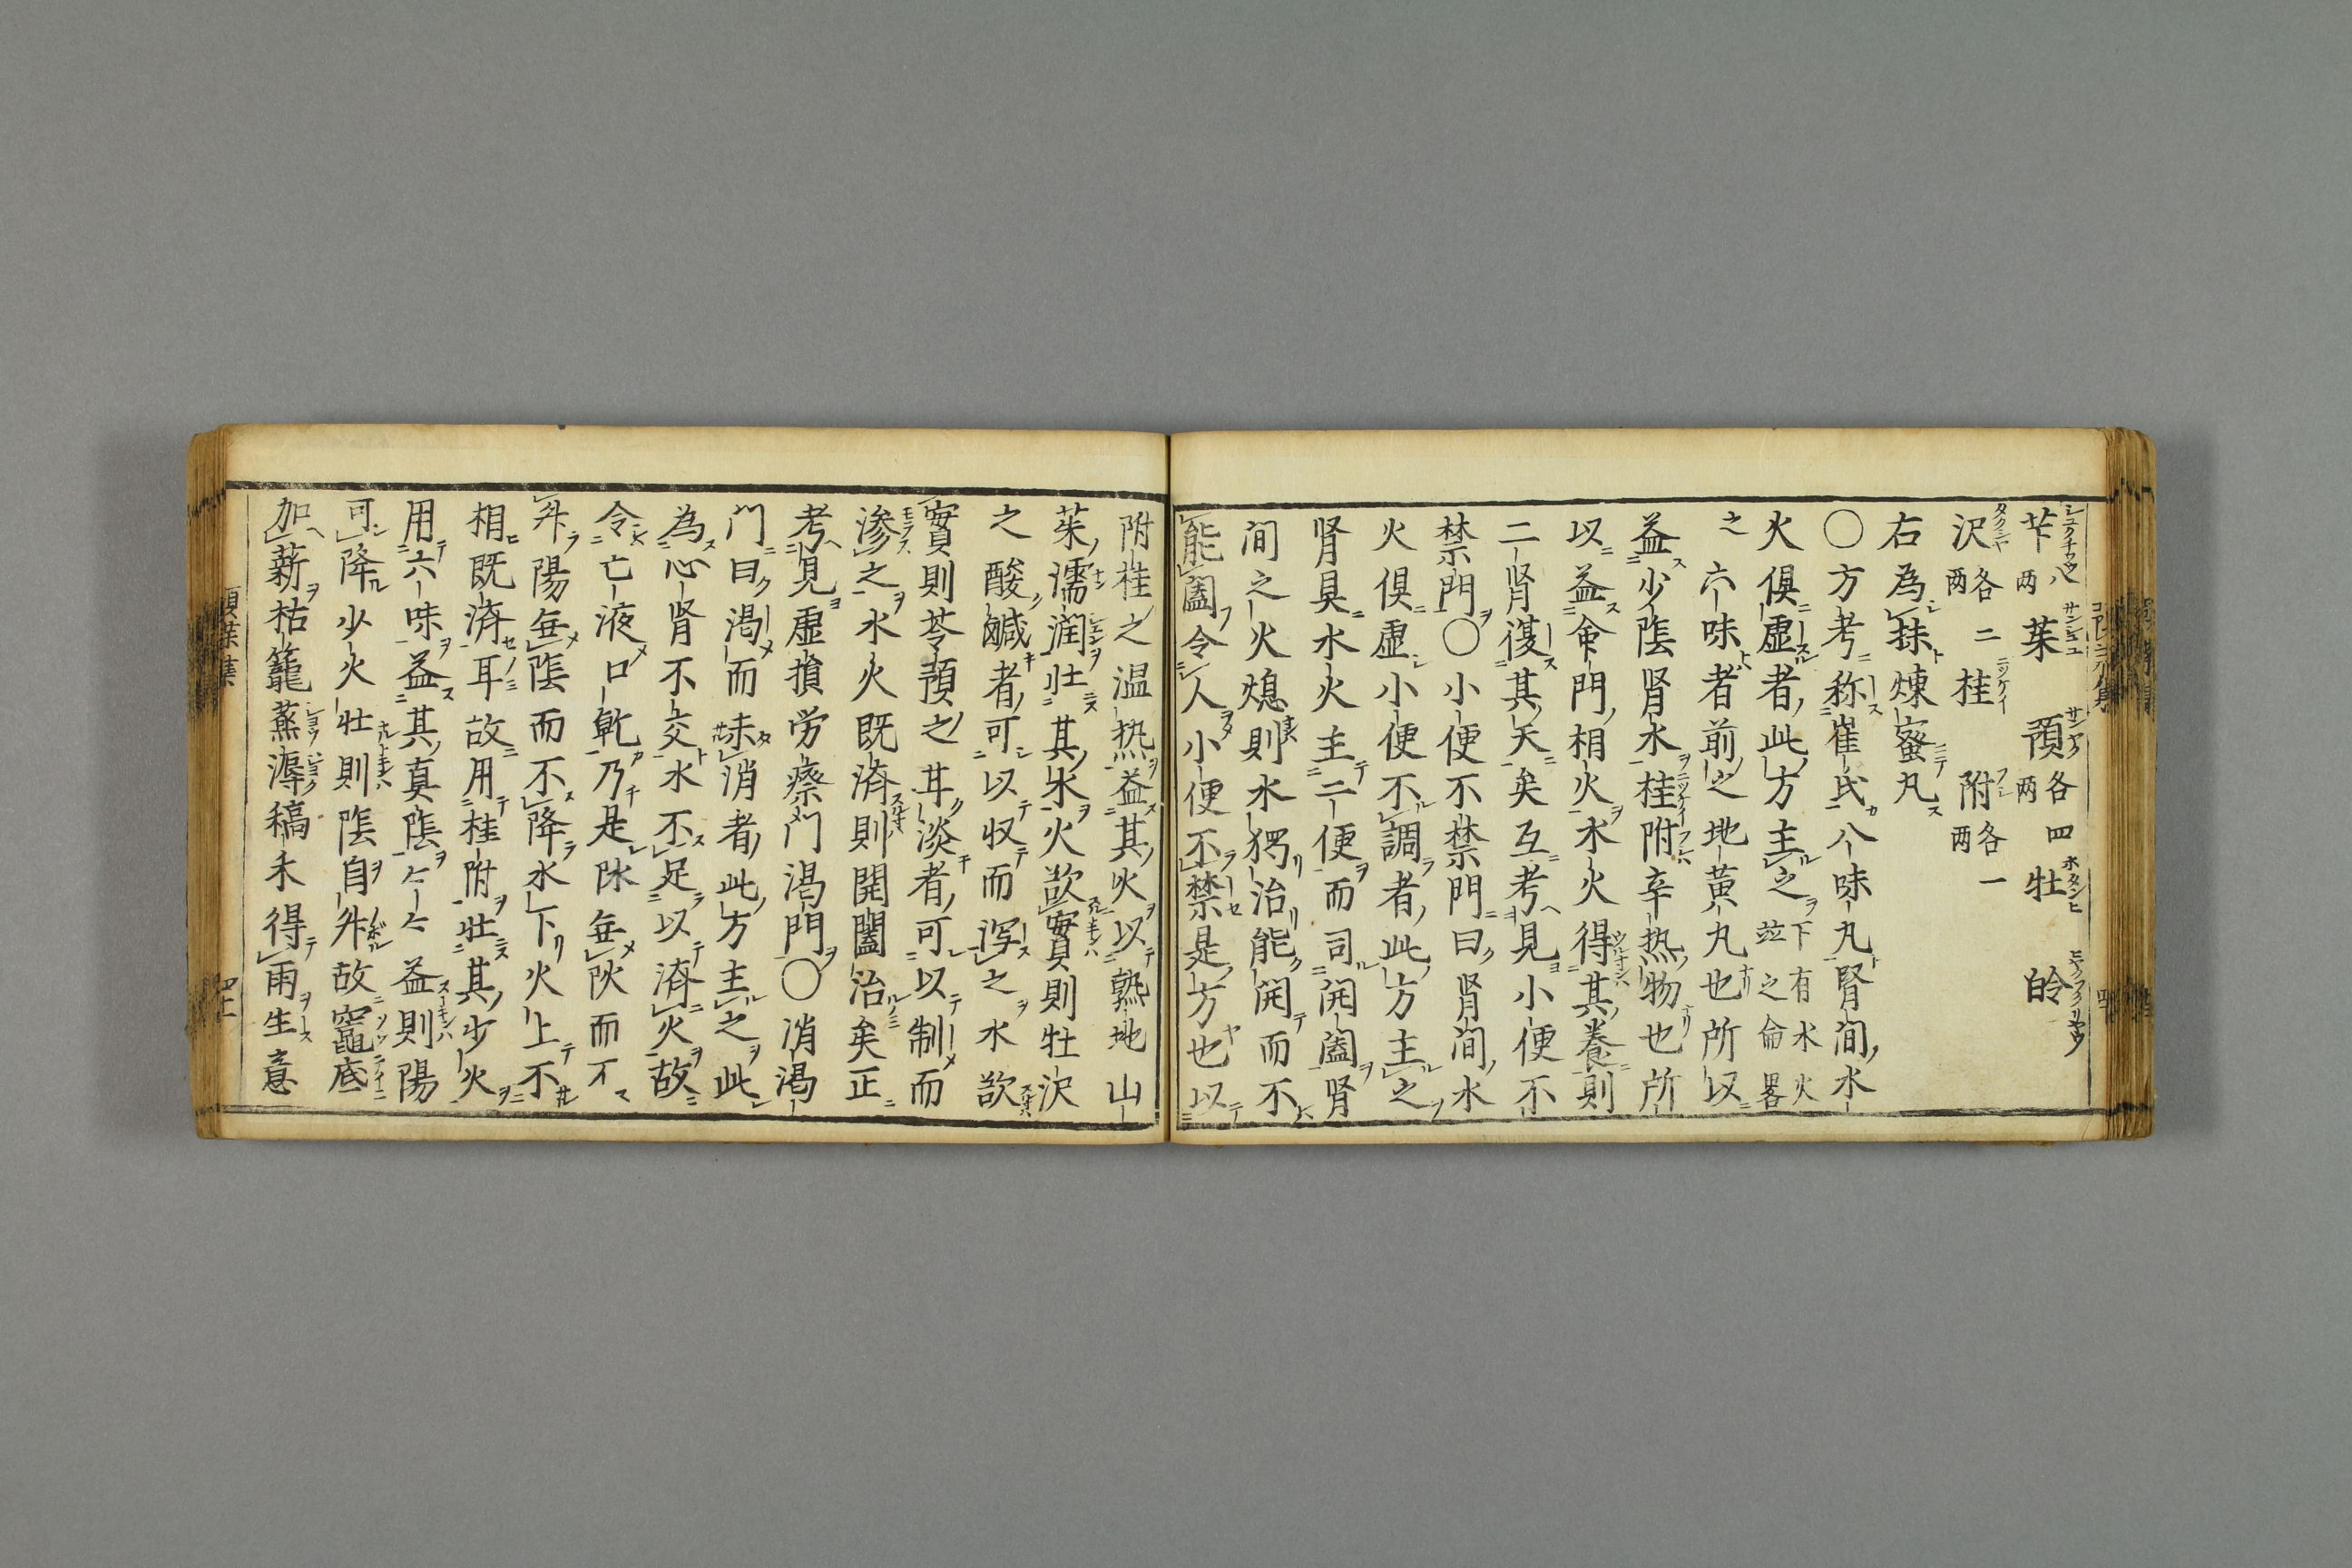 芐八両 茱 蕷各四両 牡 皊
沢各二両 桂 附各一両
右為抹煉蜜丸
〇方考称崔氏八味丸腎间水
火俱虚者此方主之下有水火並之侖畧
之六味者前之地黄丸也所以
益少隂肾水桂附辛热物也所
以益命門相火水火得其養則
二肾復其天矣互考見小便不
禁門〇小便不禁門曰肾间水
火俱虚小便不調者此方主之
肾具水火主二便而司闭阖肾
间之火熄則水獨治能闭而不
能阖令人小便不禁是方也以
附桂之温热益其火以熟地山
茱濡润壮其水火欲實則牡沢
之酸鹹者可以収而泻之水欲
實則苓蕷之甘淡者可以制而
渗之水火既済則開闔治矣正
考見虚損労瘵门渇門〇消渇
门曰渇而未消者此方主之此
為心肾不交水不足以済火故
令亡液口乾乃是隂無陽而不
升陽無隂而不降水下火上不
相既済耳故用桂附壮其少火
用六味益其真隂々々益則陽
可降少火壮則隂自升故竈底
加薪枯籠蒸溽稿禾得雨生意